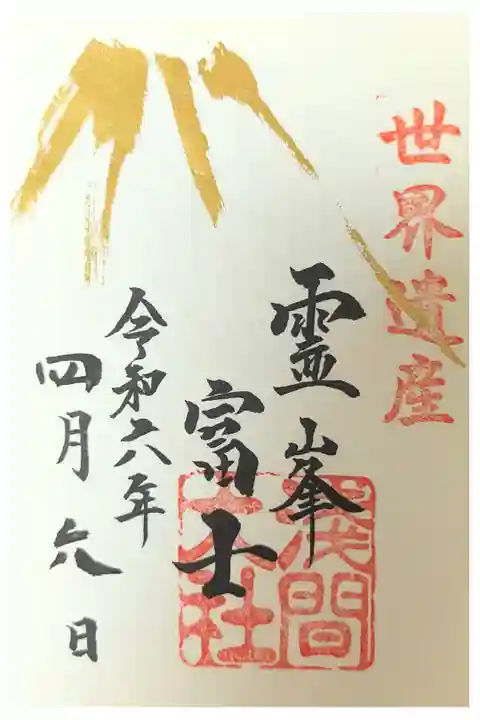 世界遺産
霊峯
富士
浅間
大社
令和六年
四月六日